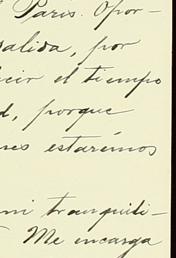 Paris. Opor-
salida, por
cir el tiempo
d, porque
nes estarémos
mi tranquili-
Me encarga